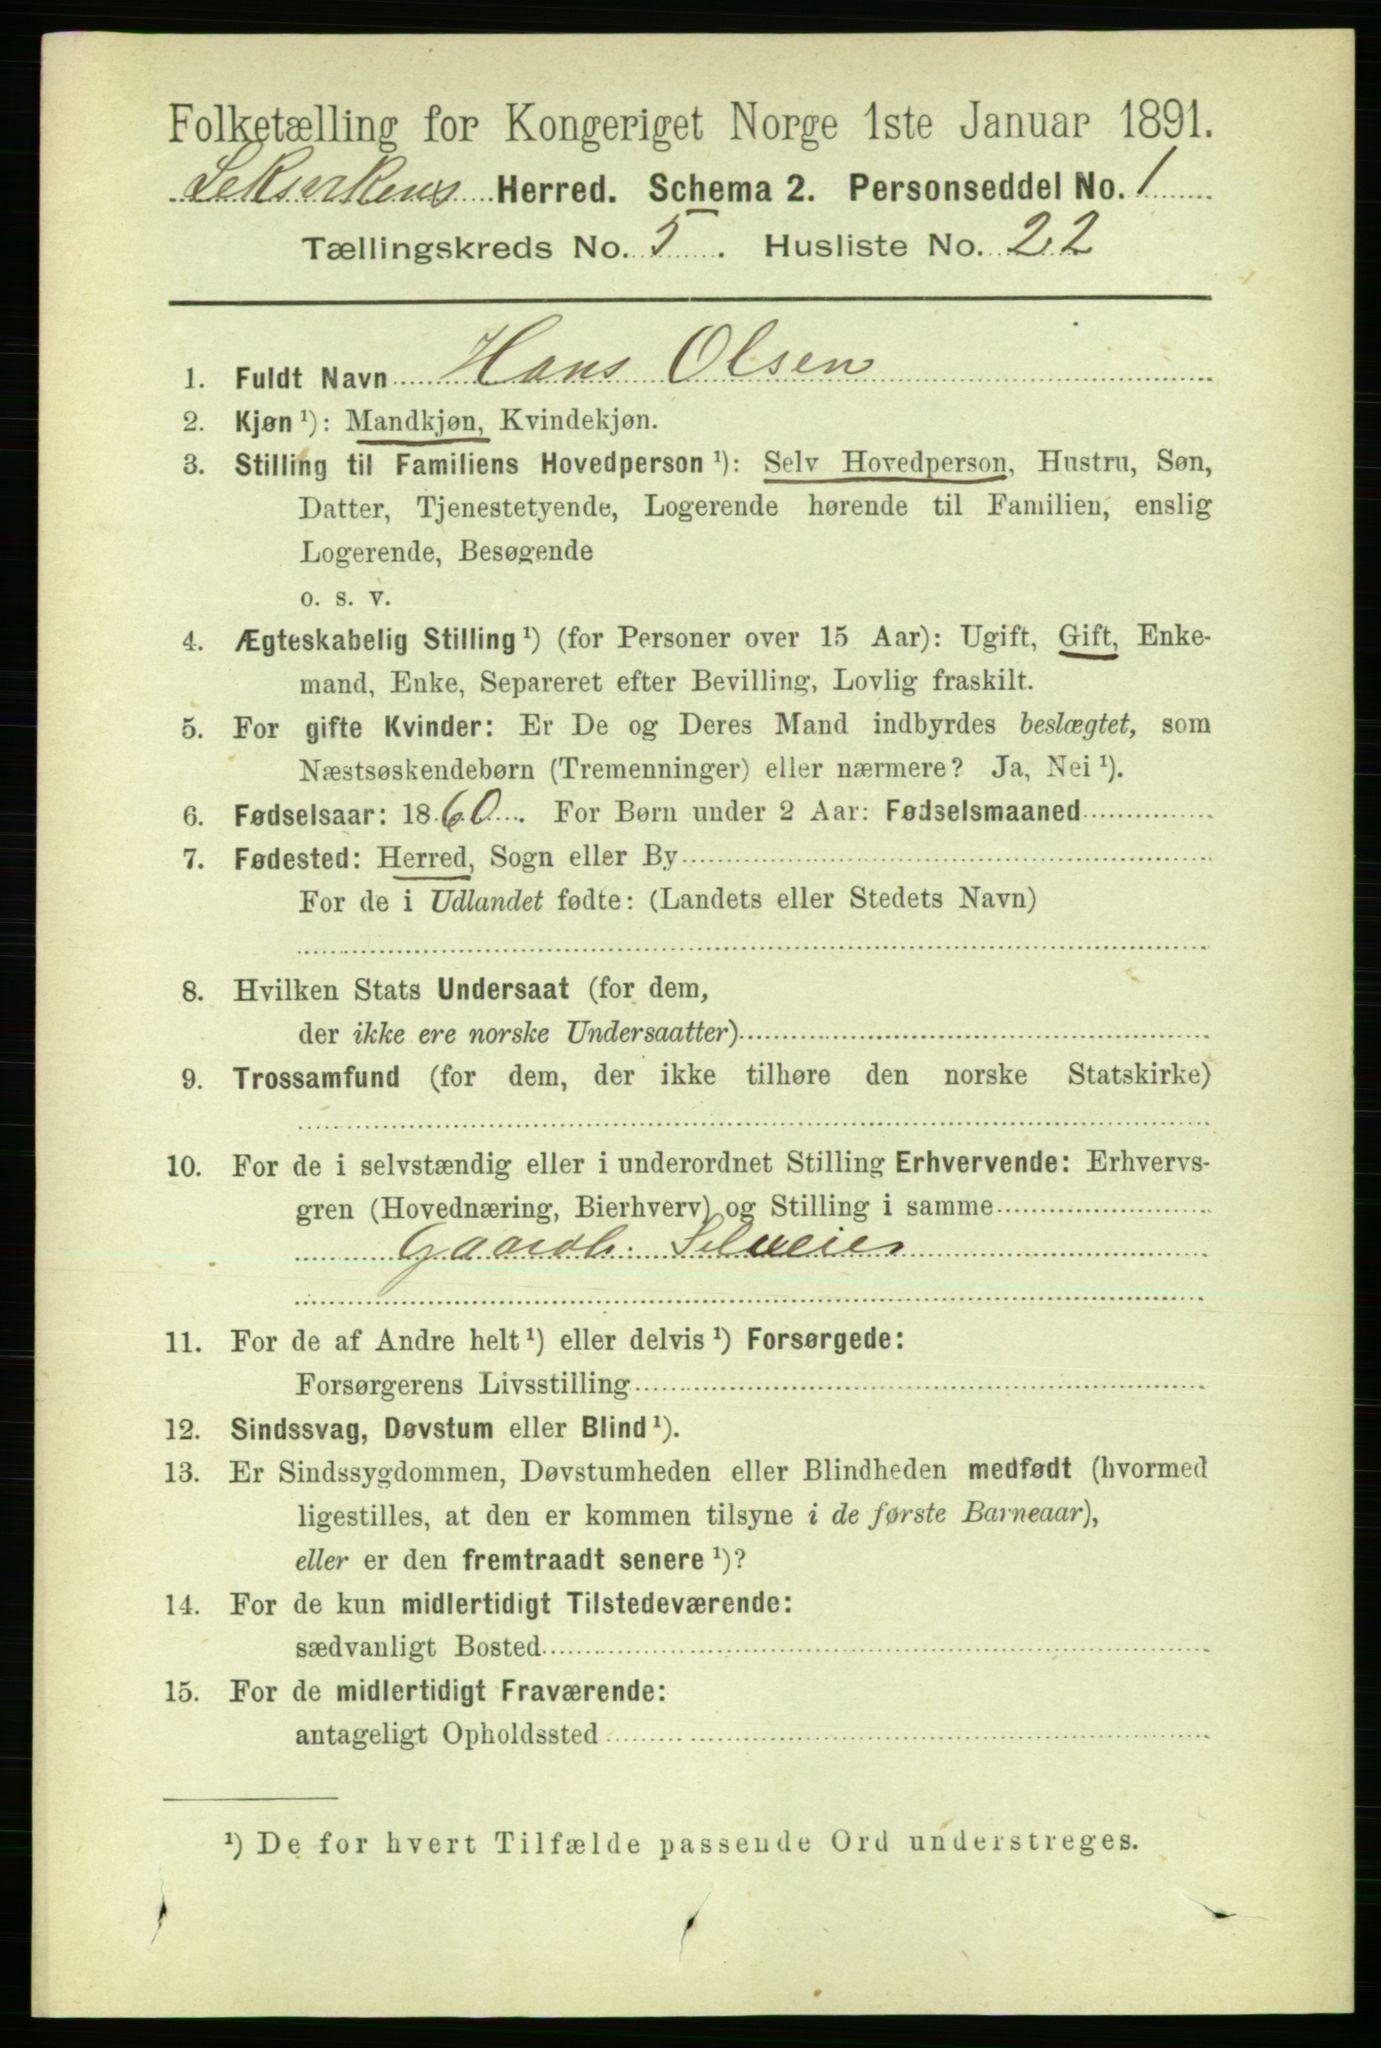 Folketælling for Kongeriget Norge 1ste Januar 1891.
Leksvikens Herred. Schema 2. Personseddel No. 1
Tællingskreds No. 5. Husliste No. 22
1. Fuldt Navn Hans Olsen
2. Kjøn ¹): Mandkjøn, Kvindekjøn.
3. Stilling til Familiens Hovedperson ¹): Selv Hovedperson, Hustru, Søn,
Datter, Tjenestetyende, Logerende hørende til Familien, enslig
Logerende, Besøgende
o. s. v.
4. Ægteskabelig Stilling ¹) (for Personer over 15 Aar): Ugift, Gift, Enke-
mand, Enke, Separeret efter Bevilling, Lovlig fraskilt.
5. For gifte Kvinder: Er De og Deres Mand indbyrdes beslægtet, som
Næstsøskendebørn (Tremenninger) eller nærmere? Ja, Nei ¹).
6. Fødselsaar: 1860. For Børn under 2 Aar: Fødselsmaaned
7. Fødested: Herred, Sogn eller By
For de i Udlandet fødte: (Landets eller Stedets Navn)
8. Hvilken Stats Undersaat (for dem,
der ikke ere norske Undersaatter)
9. Trossamfund (for dem, der ikke tilhøre den norske Statskirke)
10. For de i selvstændig eller i underordnet Stilling Erhvervende: Erhvervs-
gren (Hovednæring, Bierhverv) og Stilling i samme
Gaardb. Selveier
11. For de af Andre helt ¹) eller delvis ¹) Forsørgede:
Forsørgerens Livsstilling
12. Sindssvag, Døvstum eller Blind ¹).
13. Er Sindssygdommen, Døvstumheden eller Blindheden medfødt (hvormed
ligestilles, at den er kommen tilsyne i de første Barneaar),
eller er den fremtraadt senere ¹)?
14. For de kun midlertidigt Tilstedeværende:
sædvanligt Bosted
15. For de midlertidigt Fraværende:
antageligt Opholdssted
¹) De for hvert Tilfælde passende Ord understreges.